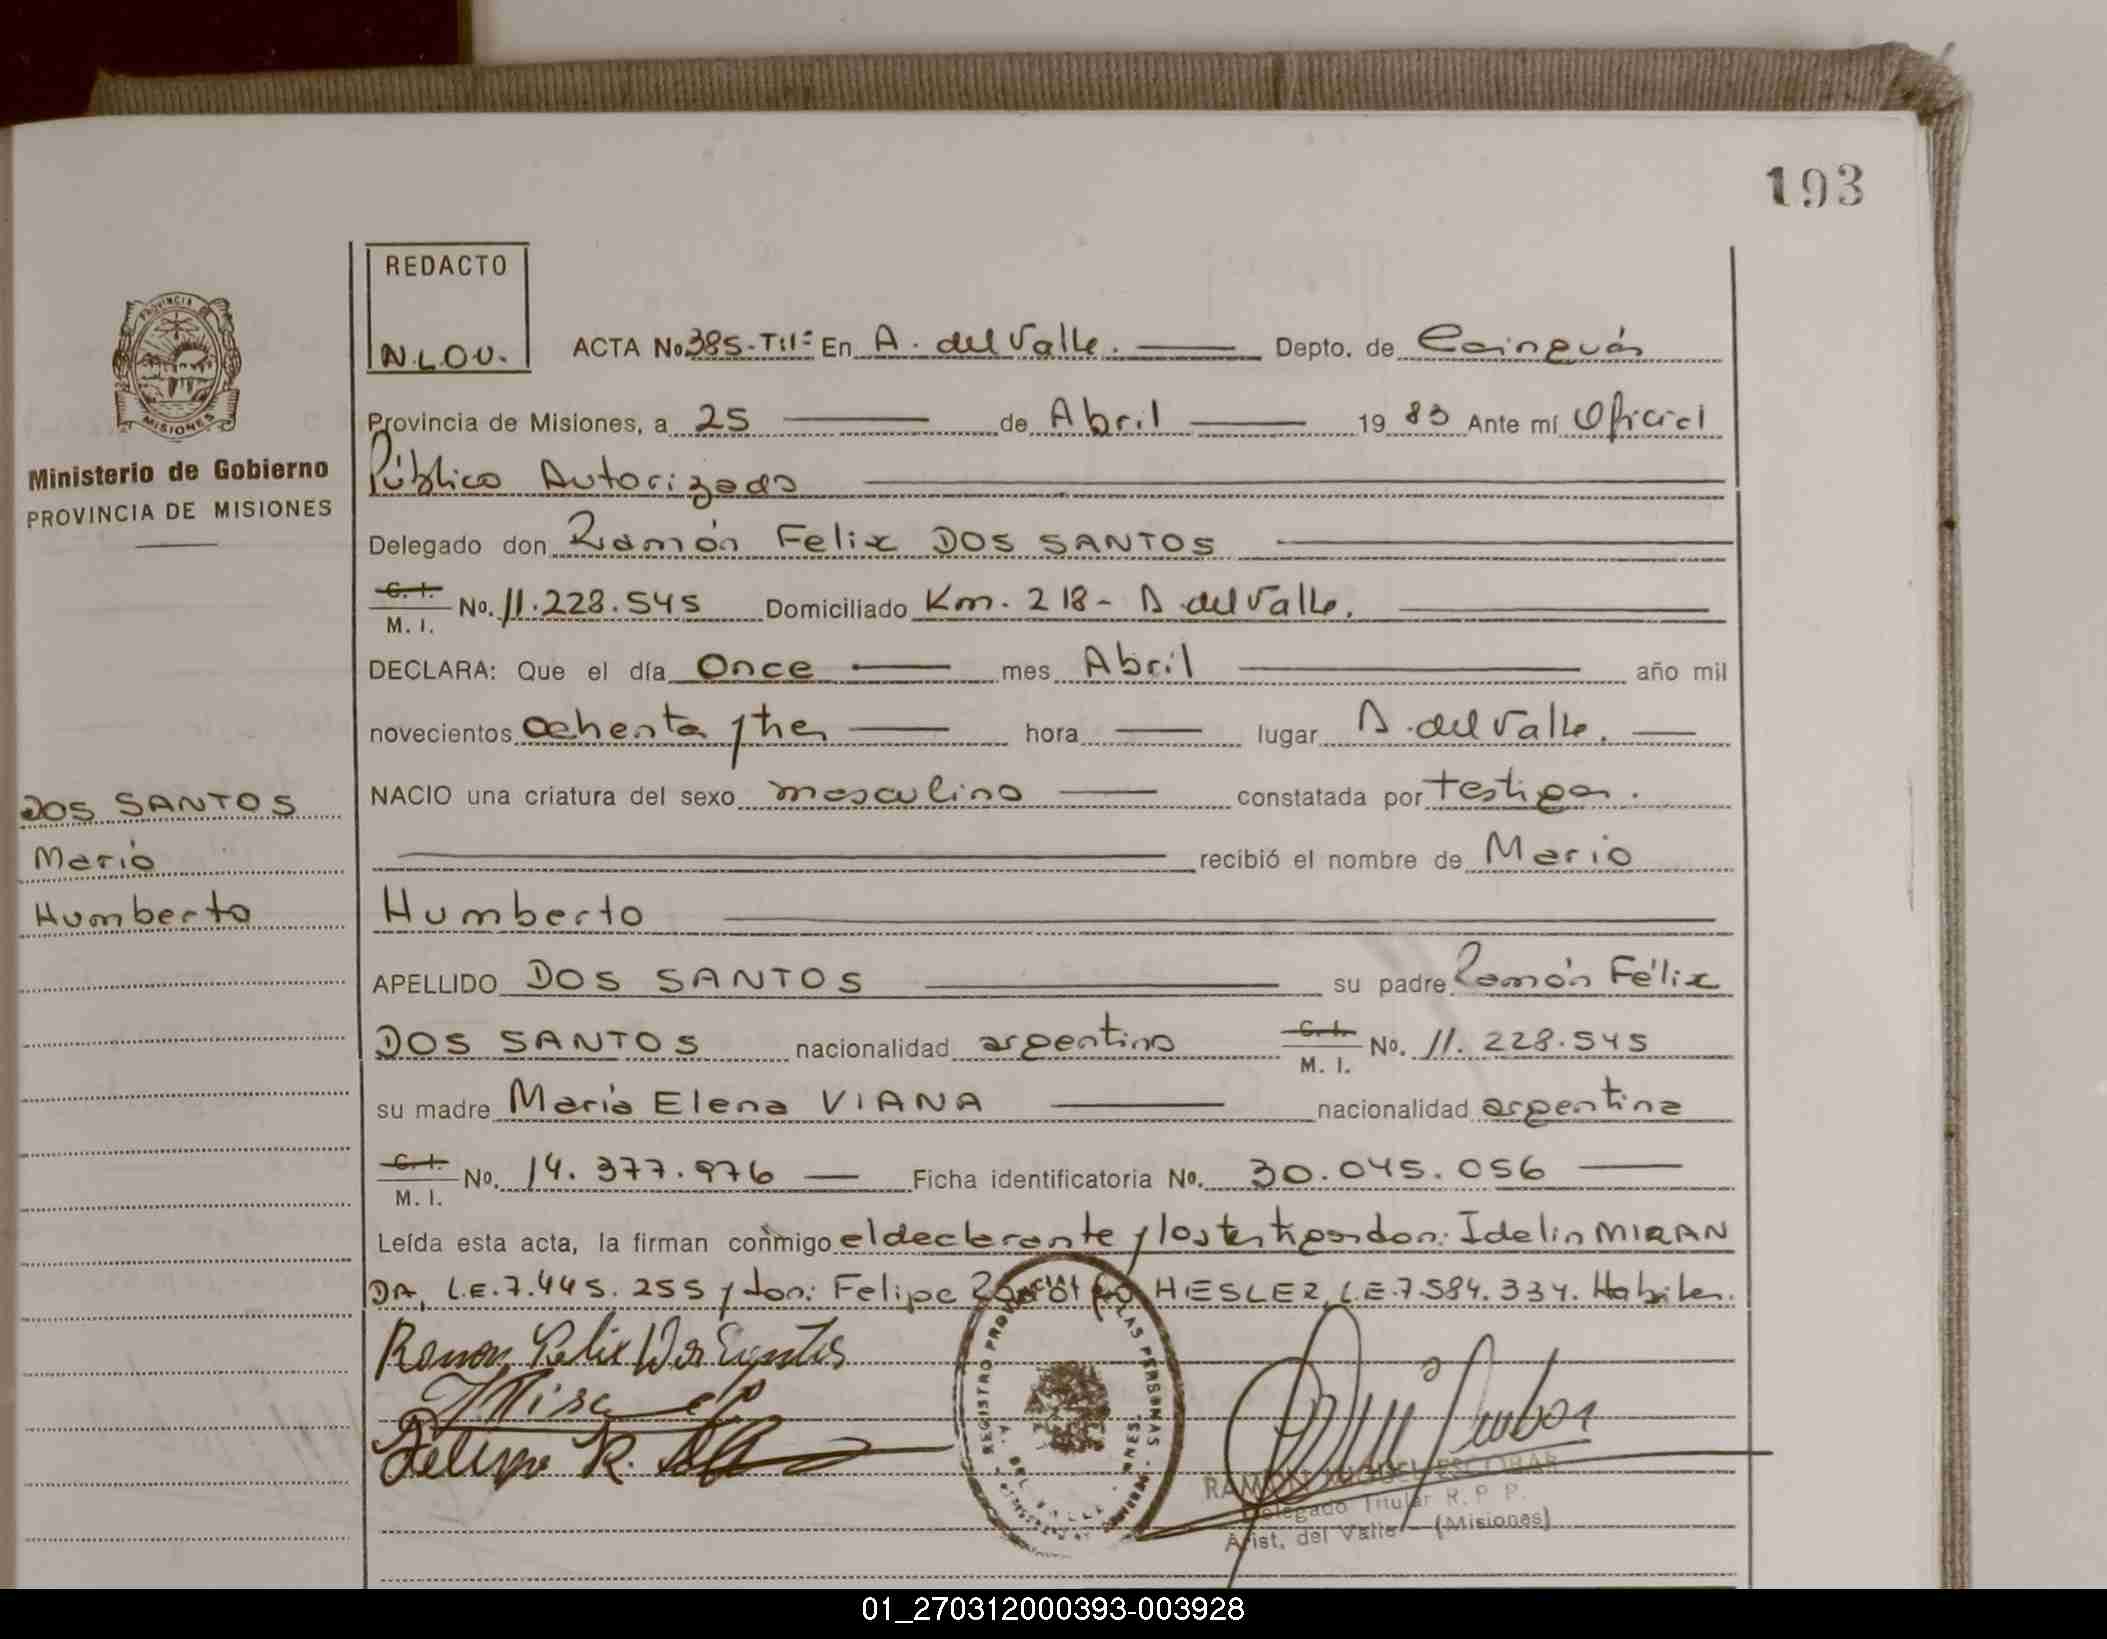 193
REDACTO
N.L.O.V.
ACTA No 385-T:1º En A. del Valle. Depto. de Cainguás
Provincia de Misiones, a 25 de Abril 19 83 Ante mí Oficial
Público Autorizado
Delegado don Ramón Felix DOS SANTOS
C. I. M. I. No. 11.228.545 Domiciliado Km. 218- A. del Valle.
DECLARA: Que el día Once mes Abril año mil
novecientos ochenta y tres hora lugar A. del Valle.
NACIO una criatura del sexo masculino constatada por testigos.
recibió el nombre de Mario
Humberto
APELLIDO DOS SANTOS su padre Ramón Félix
DOS SANTOS nacionalidad argentino C. I. M. I. No. 11.228.545
su madre María Elena VIANA nacionalidad argentina
C. I. M. I. No. 14.377.976 Ficha identificatoria No. 30.045.056
Leída esta acta, la firman conmigo el declarante y los testigos don: Idelin MIRAN
DA, L.E.7.445.255 y don: Felipe HESLER, L.E.7.584.334. Habiles.
Ramon Felix Dos Santos
Felipe R.
REGISTRO PROVINCIAL DE LAS PERSONAS
RAMON MIGUEL ESCOBAR
Delegado Titular R. P. P.
Arist. del Valle - (Misiones)
PROVINCIA
MISIONES
Ministerio de Gobierno
PROVINCIA DE MISIONES
DOS SANTOS
Mario
Humberto
01_270312000393-003928